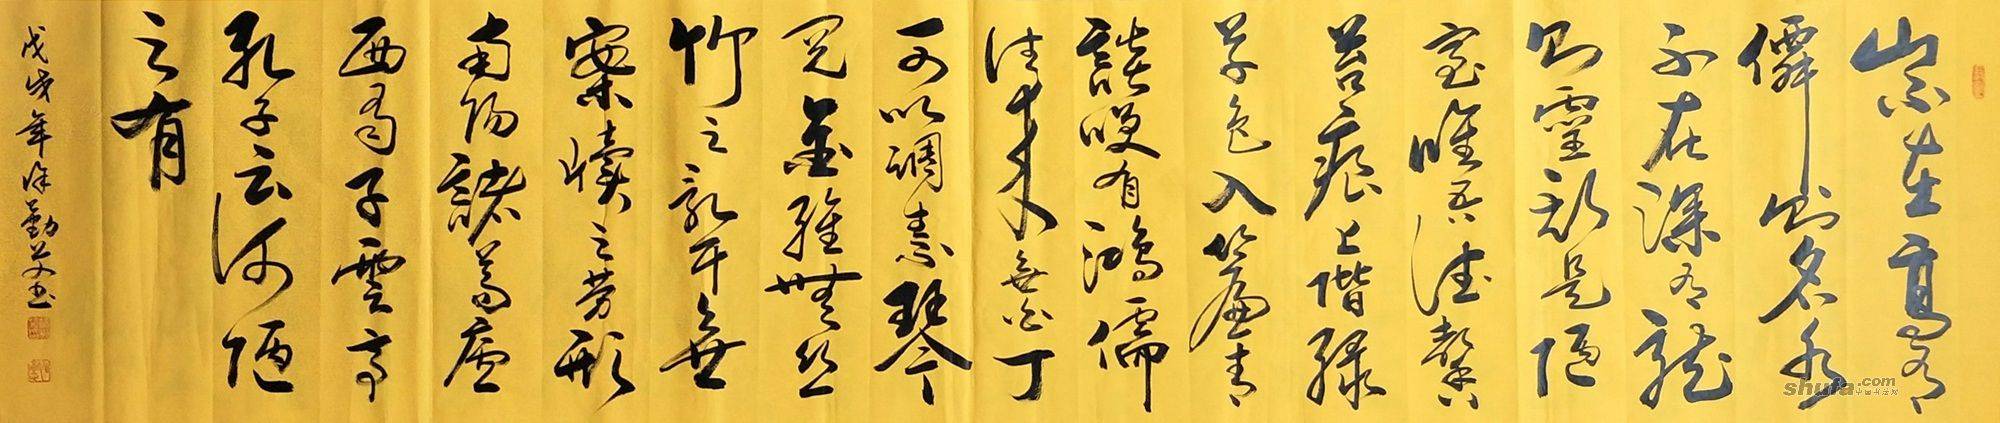 山不在高有
僊則名水
不在深有龍
則靈斯是陋
室唯吾德馨
苔痕上階緑
草色入簾青
談咲有鴻儒
往來無白丁
可以調素琴
閲金經無絲
竹之亂耳無
案牘之勞形
南陽諸葛廬
西蜀子雲亭
孔子云何陋
之有
戊戌年徐勤書
shufa.com
中国书法网